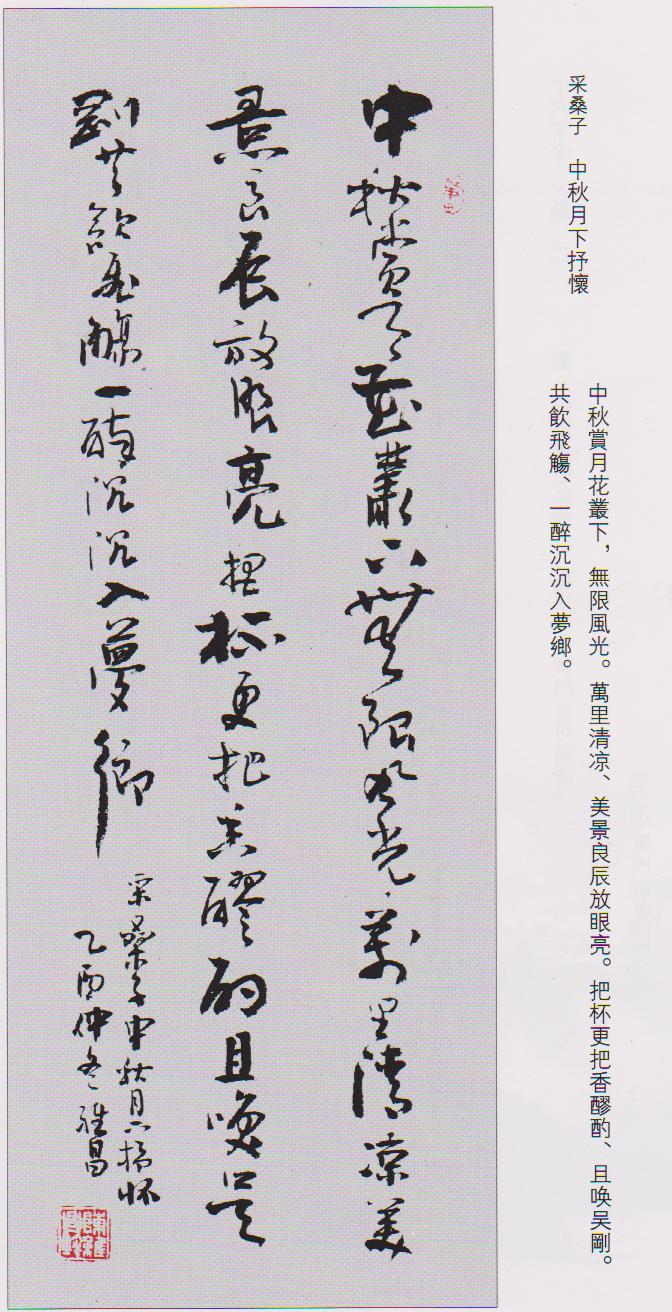 采桑子　中秋月下抒懷
中秋賞月花叢下，無限風光。萬里清凉、美景良辰放眼亮。把杯更把香醪酌、且唤吴剛。
共飲飛觴、一醉沉沉入夢鄉。
中秋賞月花叢下無限風光萬里清凉美
景良辰放眼亮杯更把香醪酌且唤吴
剛共飲飛觴一醉沉沉入夢鄉
采桑子中秋月下抒怀
乙酉仲冬雅昌